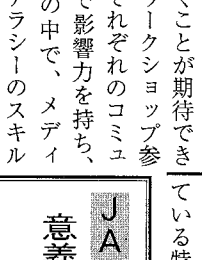 くことが期待でき
ワークショップ参
それぞれのコミュ
で影響力を持ち、
の中で、メディ
テラシーのスキル
ている特
ＪＡ
意義